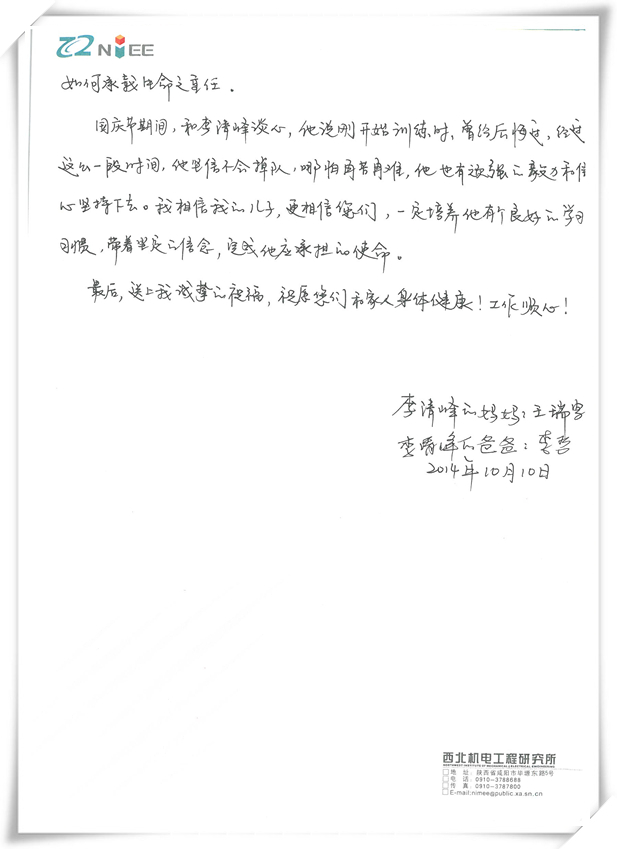 202 NIEE
如何承载生命之重任。
国庆节期间，和李清峰谈心，他说刚开始训练时，曾经后悔过，经过
这么一段时间，他坚信不会掉队，哪怕再苦再难，他也有顽强的毅力和信
心坚持下去。我相信我的儿子，更相信您们，一定培养他有个良好的学习
习惯，带着坚定的信念，完成他应承担的使命。
最后，送上我诚挚的祝福，祝愿您们和家人身体健康！工作顺心！
李清峰的妈妈：王瑞
李清峰的爸爸：李哲
2014年10月10日
西北机电工程研究所
地 址：陕西省咸阳市毕塬东路5号
电 话：0910-3788688
传 真：0910-3787800
E-mail:nimee@public.xa.sn.cn